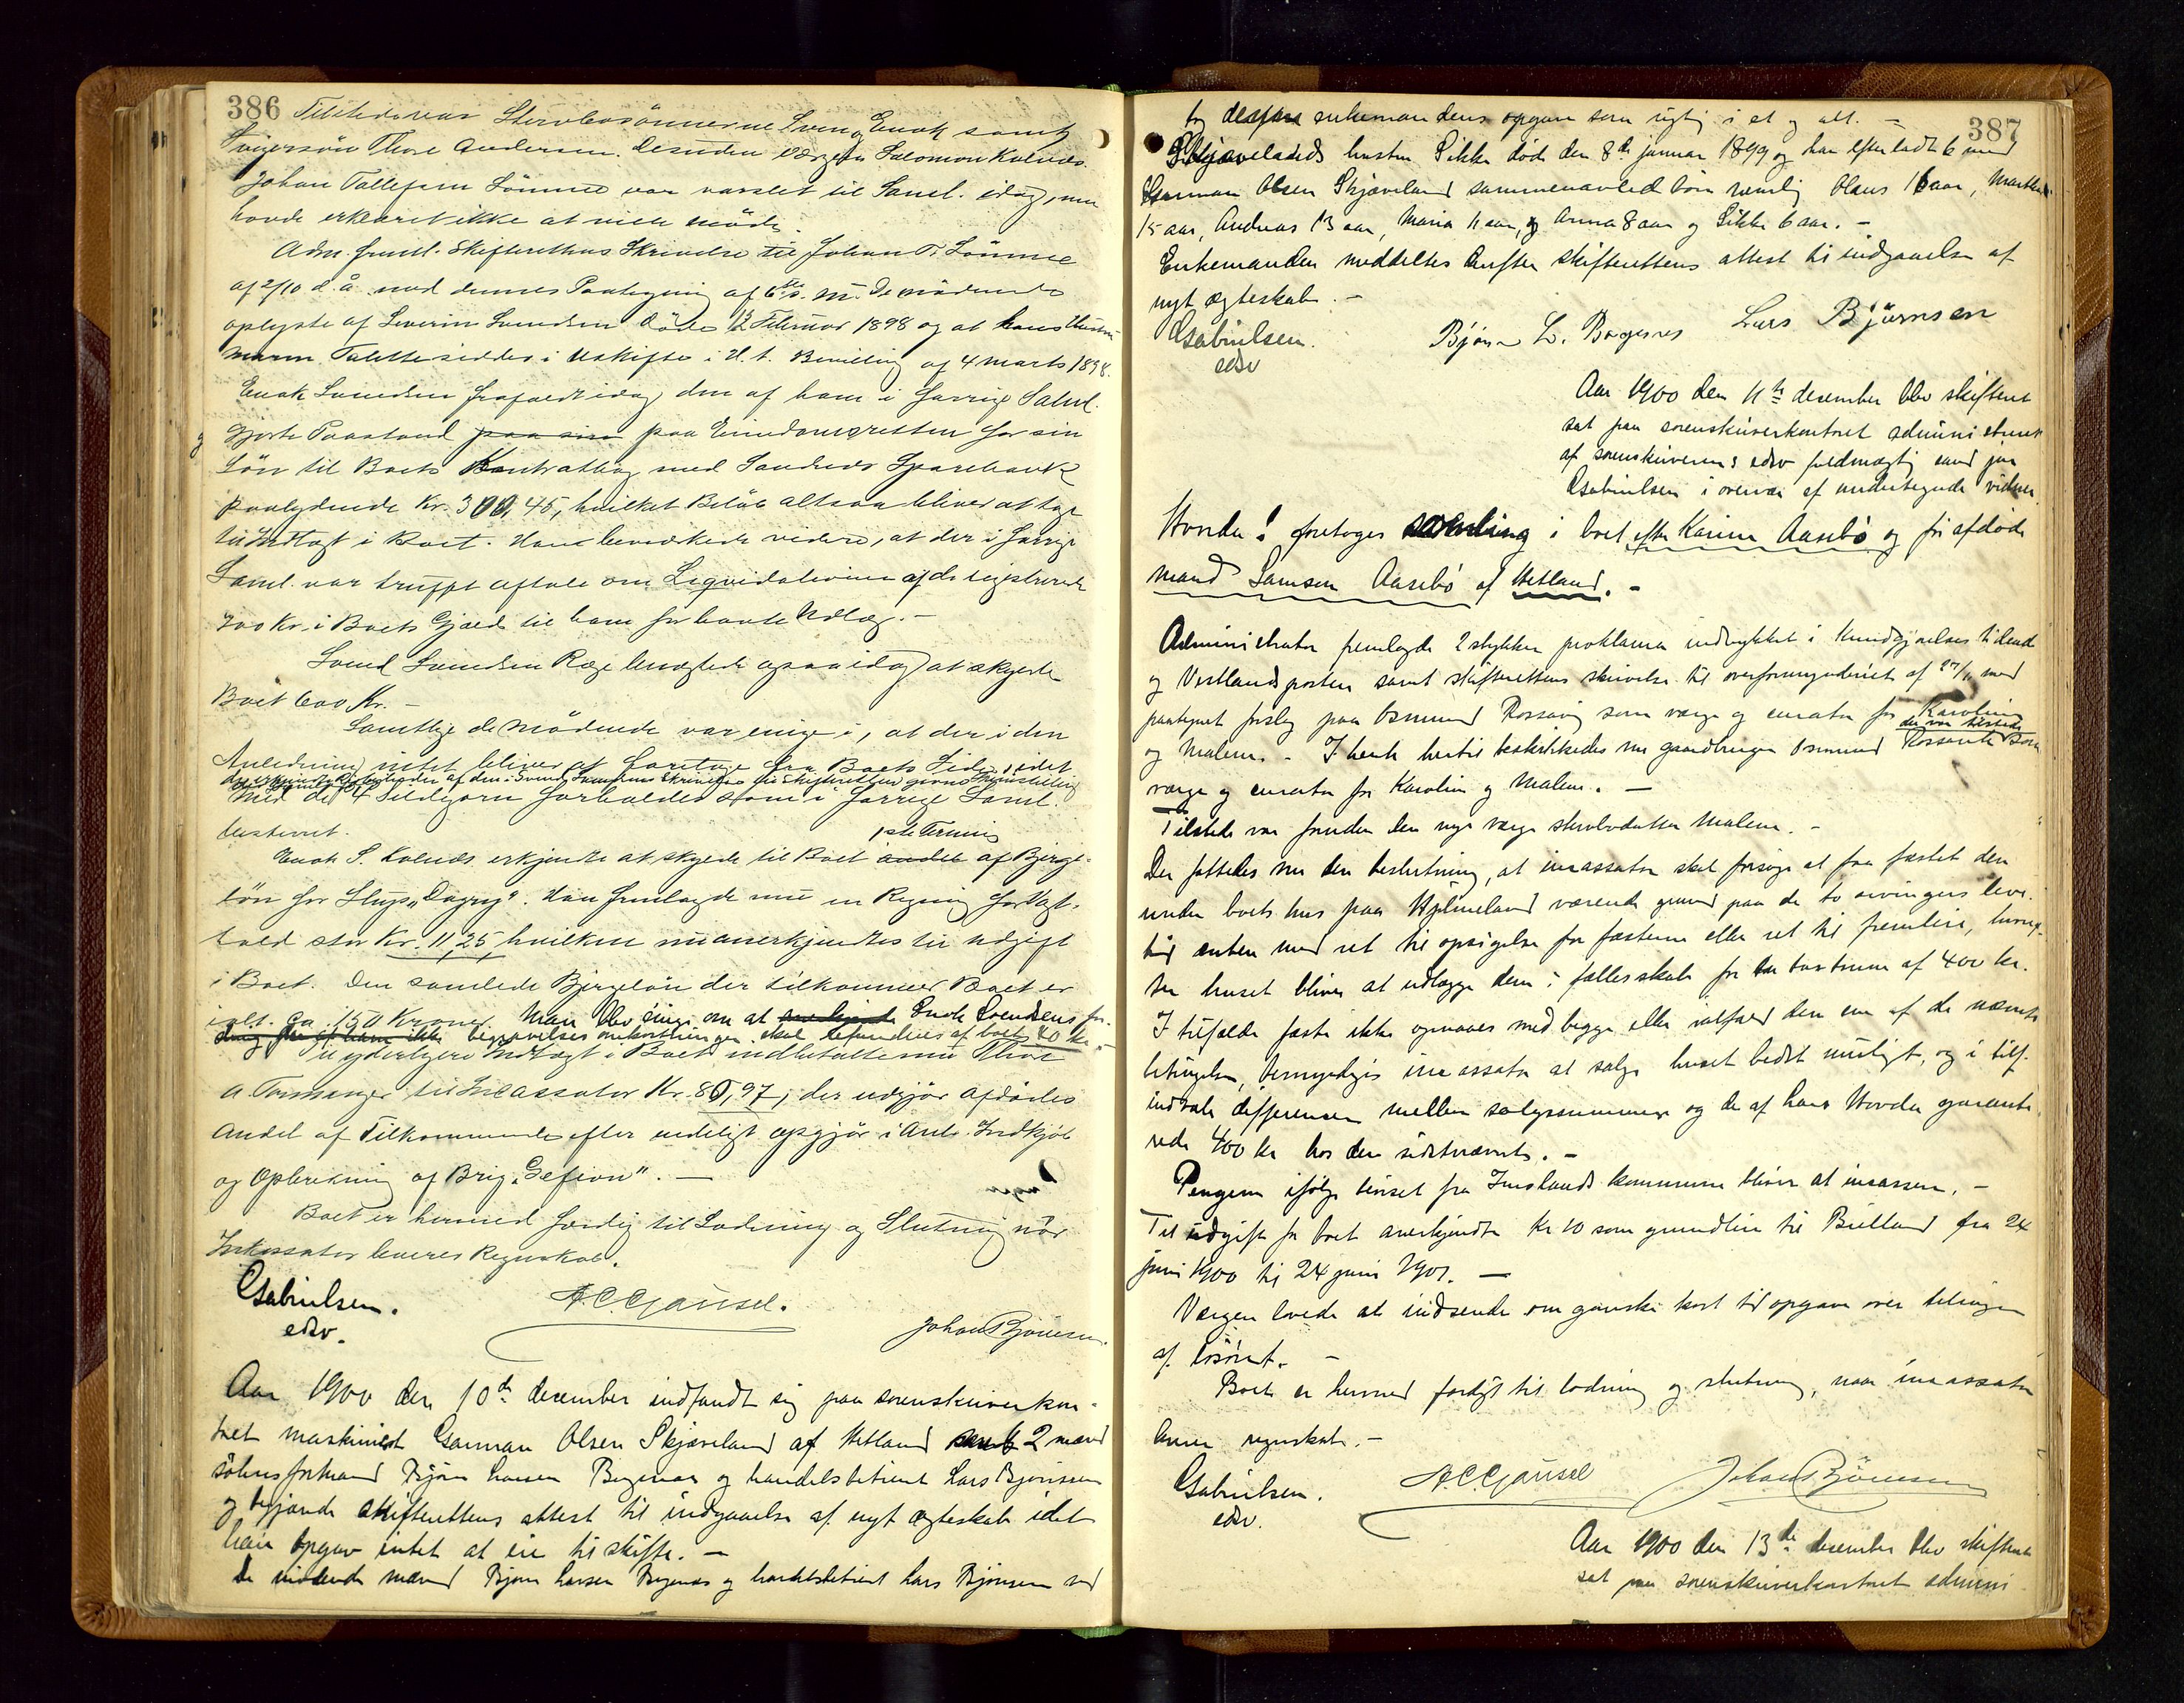 386
Tilstede var Sterbosönnerne Svend og Enok samt
Svigersön Thore Andersen. Desuden Værgen Salomon Kolnes.
Johan Tollefsen Sömme var varslet til Saml. idag, men
havde erklæret ikke at ville møde.
Adm. freml. Skifterettens Skrivelse til Johan T. Sömme
af 2/10 d.å. med dennes Paategning af 6te s. M. De mödende
oplyste af Severin Svendsen döde 12 Februar 1898 og at hans Hustru
Maren Talette sidder i Uskifte i H. t. Bevilling af 4 marts 1898.
Enok Svendsen frafaldt idag den af ham i forrige Saml.
gjorte Paastand paa sin paa Eiendomsretten for sin
Sön til Boets Kontrabog med Sandnes Sparebank
paalydende Kr. 300,45, hvilket Belöb altsaa bliver at tage
til Indtægt i Boet. Han bemærkede videre, at der i forrige
Saml. var truffet aftale om Liquidationen af de registrerede
700 Kr. i Boets Gjæld til ham for havte Udlæg. –
Svend Svendsen Ræge benægtede ogsaa idag at skylde
Boet 600 Kr. –
Samtlige de Mödende var enige i, at der i den
Anledning intet bliver at foretage fra Boets Side, idet
de erkjendte Rigtigheden af den i Svend Svendsens Skrivelse til Skifteretten givne Fremstilling
Med de 4 Sildegarn forholdes som i forrige Saml.
bestemt.
1ste Termin
Enok S. Kolnes erkjendte at skylde til Boet andel af Bjerge-
lön for Slup "Dagny". Han fremlagde nu en Regning for Vagt-
hold stor Kr. 11,25, hvilken nu anerkjendtes til Udgift
i Boet. Den samlede Bjergelön der tilkommer Boet er
ialt ca 150 Kroner. Man blev enige om at Enok Svendsens for-
begravelses omkostninger skal refunderes af boet 40 kr. –
Til yderligere Indtægt i Boet indbetalte nu Thore
A. Tananger til Incassator Kr. 80,97, der udgjör Afdödes
Andel af Tilkommende efter endeligt opgjör i Anl. Indkjöb
og Ophugning af Brig "Gefion". –
Boet er hermed færdig til Lodning og Slutning når
Inkassator leverer Regnskab.
Gabrielsen.
edsv.
A.C. Gausel.
Johan Bjönnesen.
Aar 1900 den 10de december indfandt sig paa sorenskriverkon-
toret maskinist Garman Olsen Skjæveland af Hetland samt 2 mænd
Bjørn Larsen og handelsbetjent Lars Bjørnsen
og begjærede skifterettens attest til indgaaelse af nyt ægteskab idet
han opgav intet at eie til skifte. –
De mødende mænd Bjørn Larsen og handelsbetjent Lars Bjørnsen
387
tog enkemandens opgave som rigtig i et og alt. –
Skjævelands hustru Sikke døde den 8de januar 1899 og har efterladt 6 med
Garman Olsen Skjæveland sammenavlede børn nemlig Olaus 16 aar, Marthe
15 aar, Andreas 13 aar, Maria 11 aar, og Anna 8 aar og Sikke 6 aar. –
Enkemanden meddeltes derefter skifterettens attest til indgaaelse af
nyt ægteskab. –
Gabrielsen.
edsv
Bjørn L. Lars Bjørnsen
Aar 1900 den 11te december blev skifteret
sat paa sorenskriverkontoret administreret
af sorenskriverens edsv fuldmægtig cand jur
Gabrielsen i overvær af undertegnede vidner.
Hvorda! foretoges samling i boet efter Karine Aarebø og før afdøde
mand Samson Aarebø af Hetland. –
Administrator fremlagde 2 stykker proklama indrykket i Kundgjørelsestidende
og Vestlandsposten samt skifterettens skrivelse til overformynderiet af 27/11 med
paategnet forslag paa Osmund Rossavig som værge og curator for Karoline
og Malene. – I henh. hertil beskikkedes nu gaardbruger Osmund Rossavik der var tilstede som
værge og curator for Karoline og Malene. –
Tilstede var foruden den nye værge sterbodatter Malene. –
Der fattedes nu den beslutning, at incassator skal forsøge at faa fæstet den
under boets hus paa Hjelmeland værende grund paa de to arvingers leve-
tid enten med ret til opsigelse for fæsterne eller ret til fremleie, hvoref-
ter huset bliver at udlægge dem i fællesskab for taxtsum af 400 kr.
I tilfælde fæste ikke opnaaes med begge eller ialfald den ene af de nævnte
betingelser, bemyndiges incassator at sælge huset bedst muligt, og i tilf.
indtale differensen mellem salgssummen og de af Hans Hovda garante-
rede 400 kr hos den sidstnævnte. –
Pengene ifølge beviset fra Imslands kommune bliver at incassere. –
Til udgift for boet anerkjendtes Kr 10 som grundleie til fra 24
juni 1900 til 24 juni 1901. –
Værgen lovede at indsende om ganske kort tid opgave over delingen
af løsøret. –
Boet er hermed færdigt til lodning og slutning, naar incassator
leverer regnskab. –
Gabrielsen.
edsv.
A.C. Gausel Johan Bjönnesen
Aar 1900 den 13de december blev skifteret
sat paa sorenskriverkontoret admini-